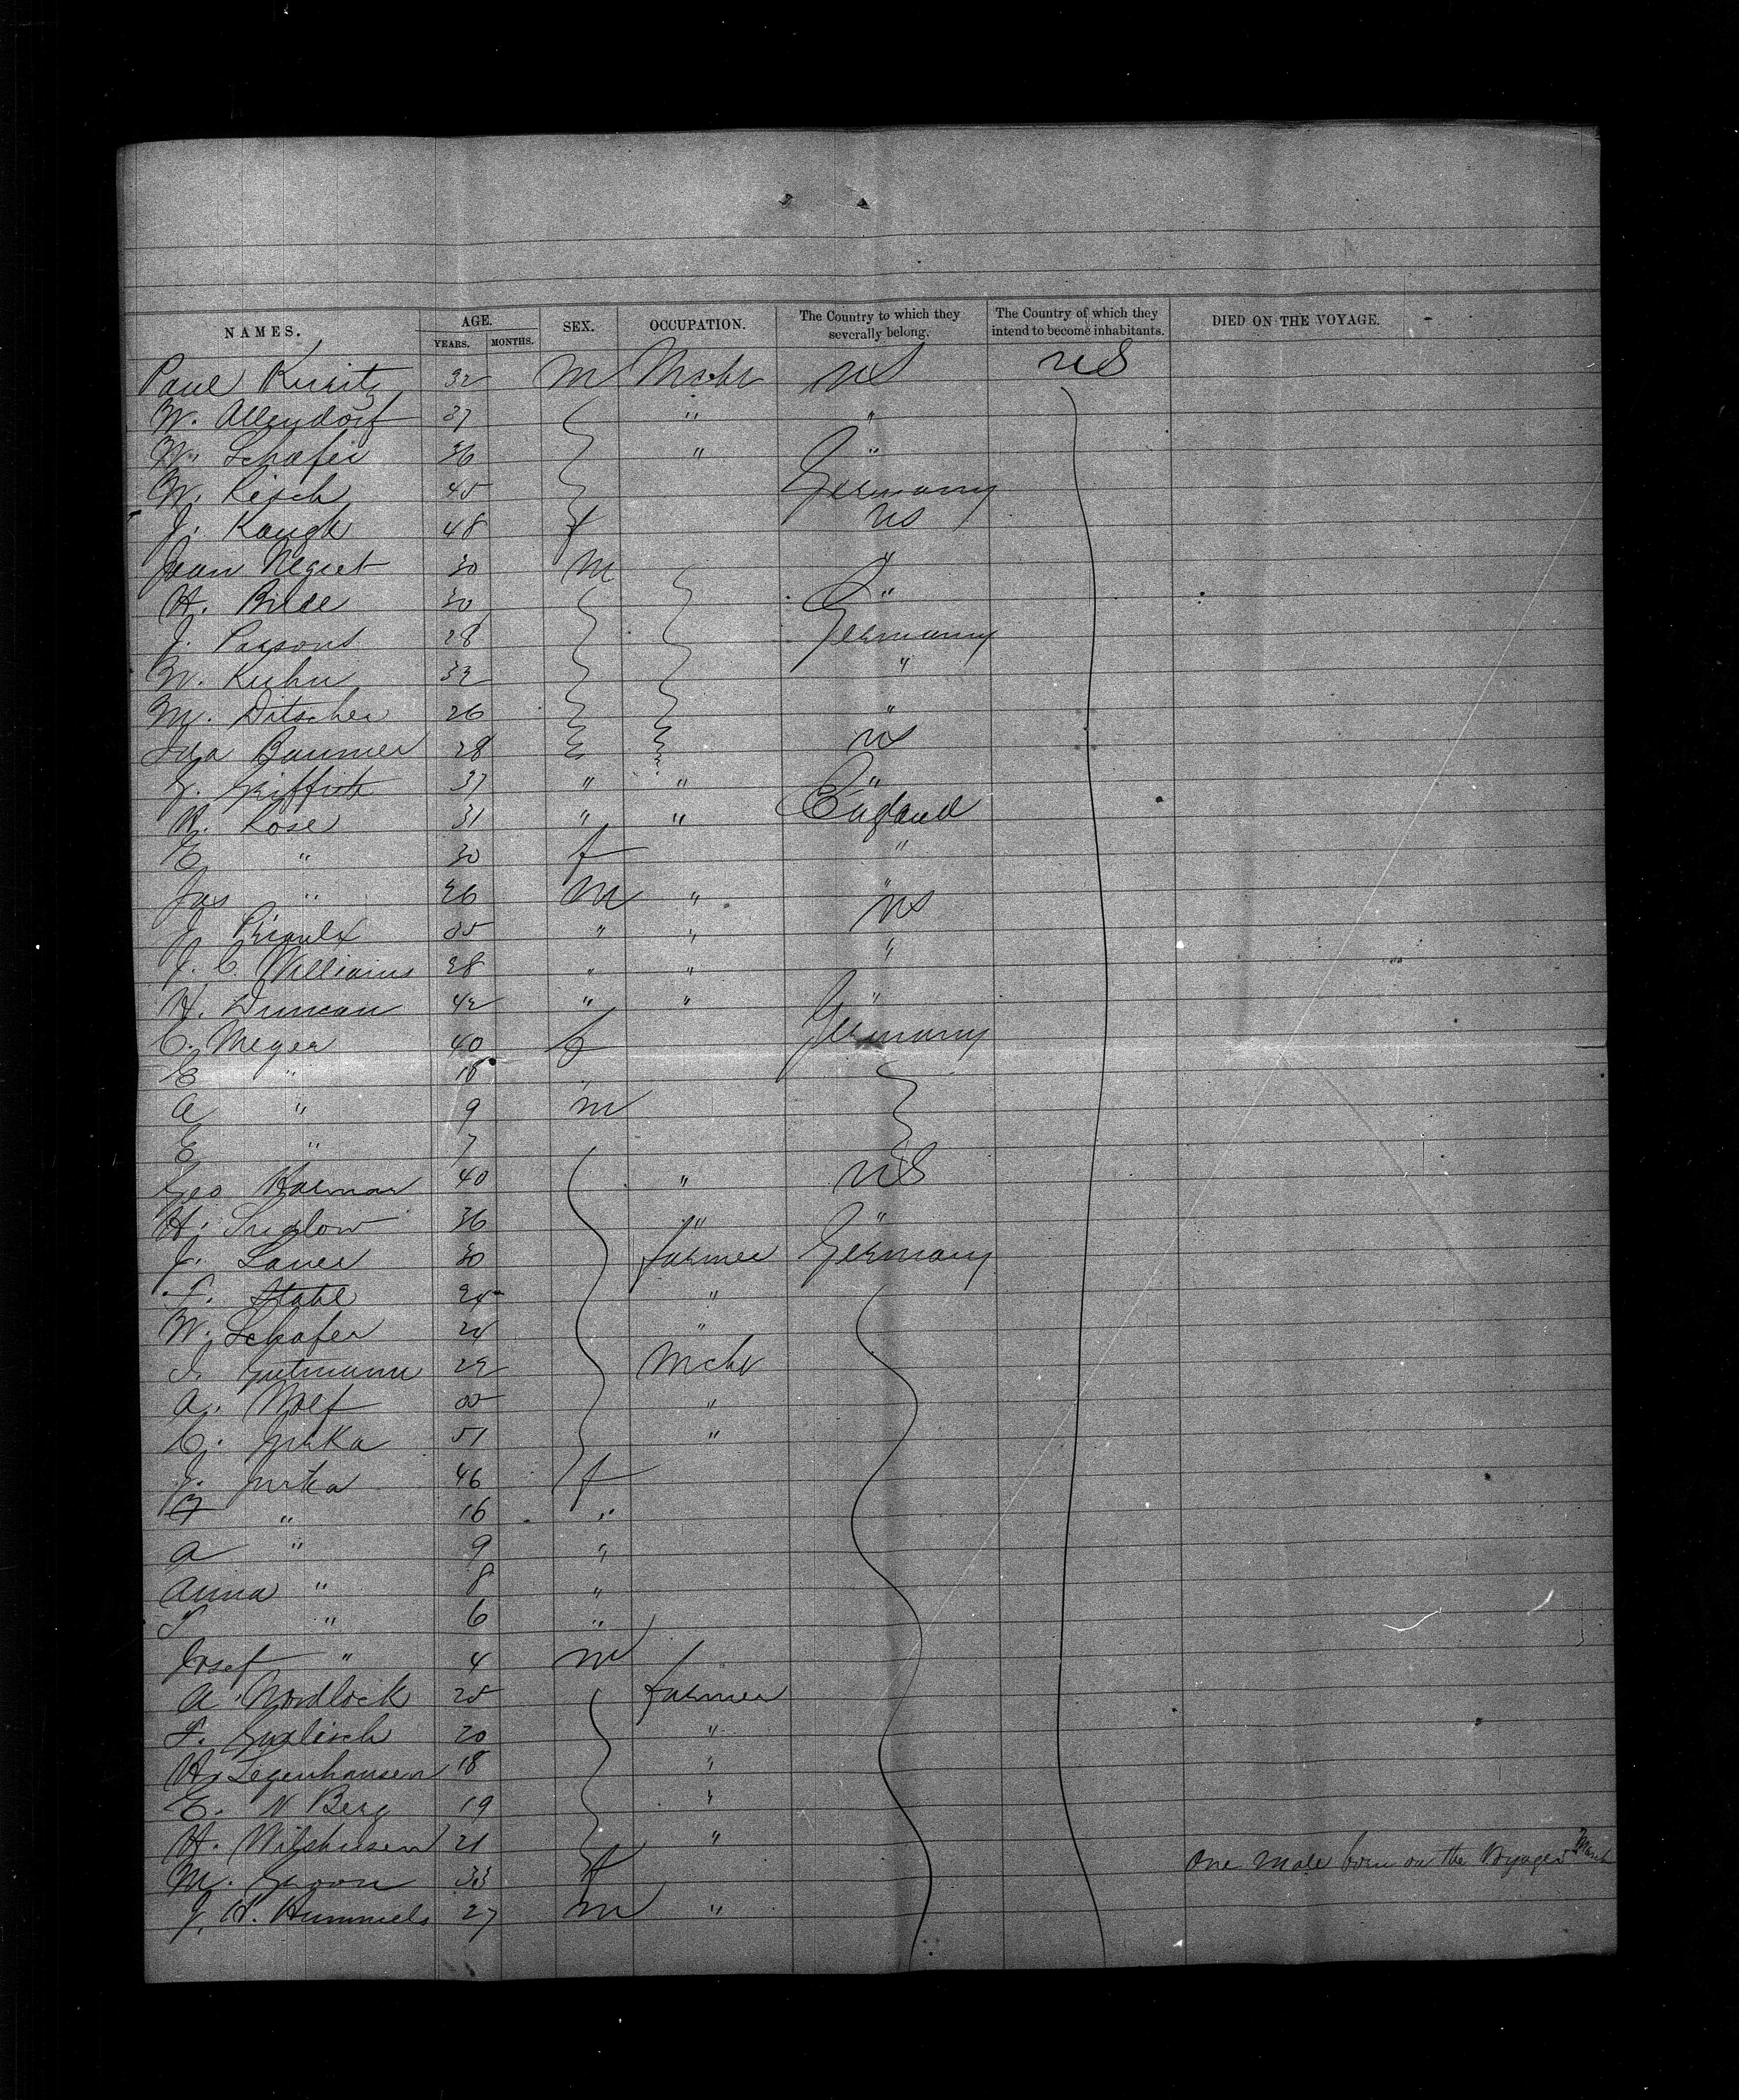 NAMES. AGE. YEARS. MONTHS. SEX. OCCUPATION. The Country to which they severally belong. The Country of which they intend to become inhabitants. DIED ON THE VOYAGE.
Paul 32 m US US
W. Allendorf 37 " "
W. Schafer 36 " "
W. Risch 45 Germany
J. Kaugh 48 f US
Jean Negret 30 m "
H. Bilde 30 "
J. Parsons 28 Germany
W. Kuhn 32 "
M. Ditscher 26 "
Ida Baumer 28 US
G. Griffith 37 " " "
R. Rose 31 " " England
E " 30 f "
Jas " 26 m " "
J 35 " " US
J. C. Williams 28 " " "
H. Duncan 42 " " "
C. Meyer 40 f Germany
E " 18 "
A " 9 m
E " 7
Geo 40 " US
H. 36 " "
J. Lauer 30 farmer Germany
F. Stahl 24 "
W. Schafer 24 "
Gutmann 22 Mcht
A. Wolf 35 "
C. Jurka 51 "
J. Jurka 46 f
" 16 "
A " 9 "
Anna " 8 "
" 6 "
Josef " 4 m
A. Nordlock 25 farmer
F. Englisch 20 "
H. Segenhausen 18 "
E. V Berg 19 "
H. Wilshusen 21 "
M. 33 f One male born on the Voyage March
J. H. Hummels 27 m "